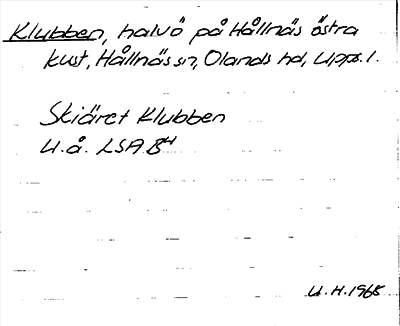 Klubben, halvö på Hållnäs östra
kust, Hållnäs sn, Olands hd, Upps. l.
Skiäret Klubben
U.å. LSA B4
U.H. 1965